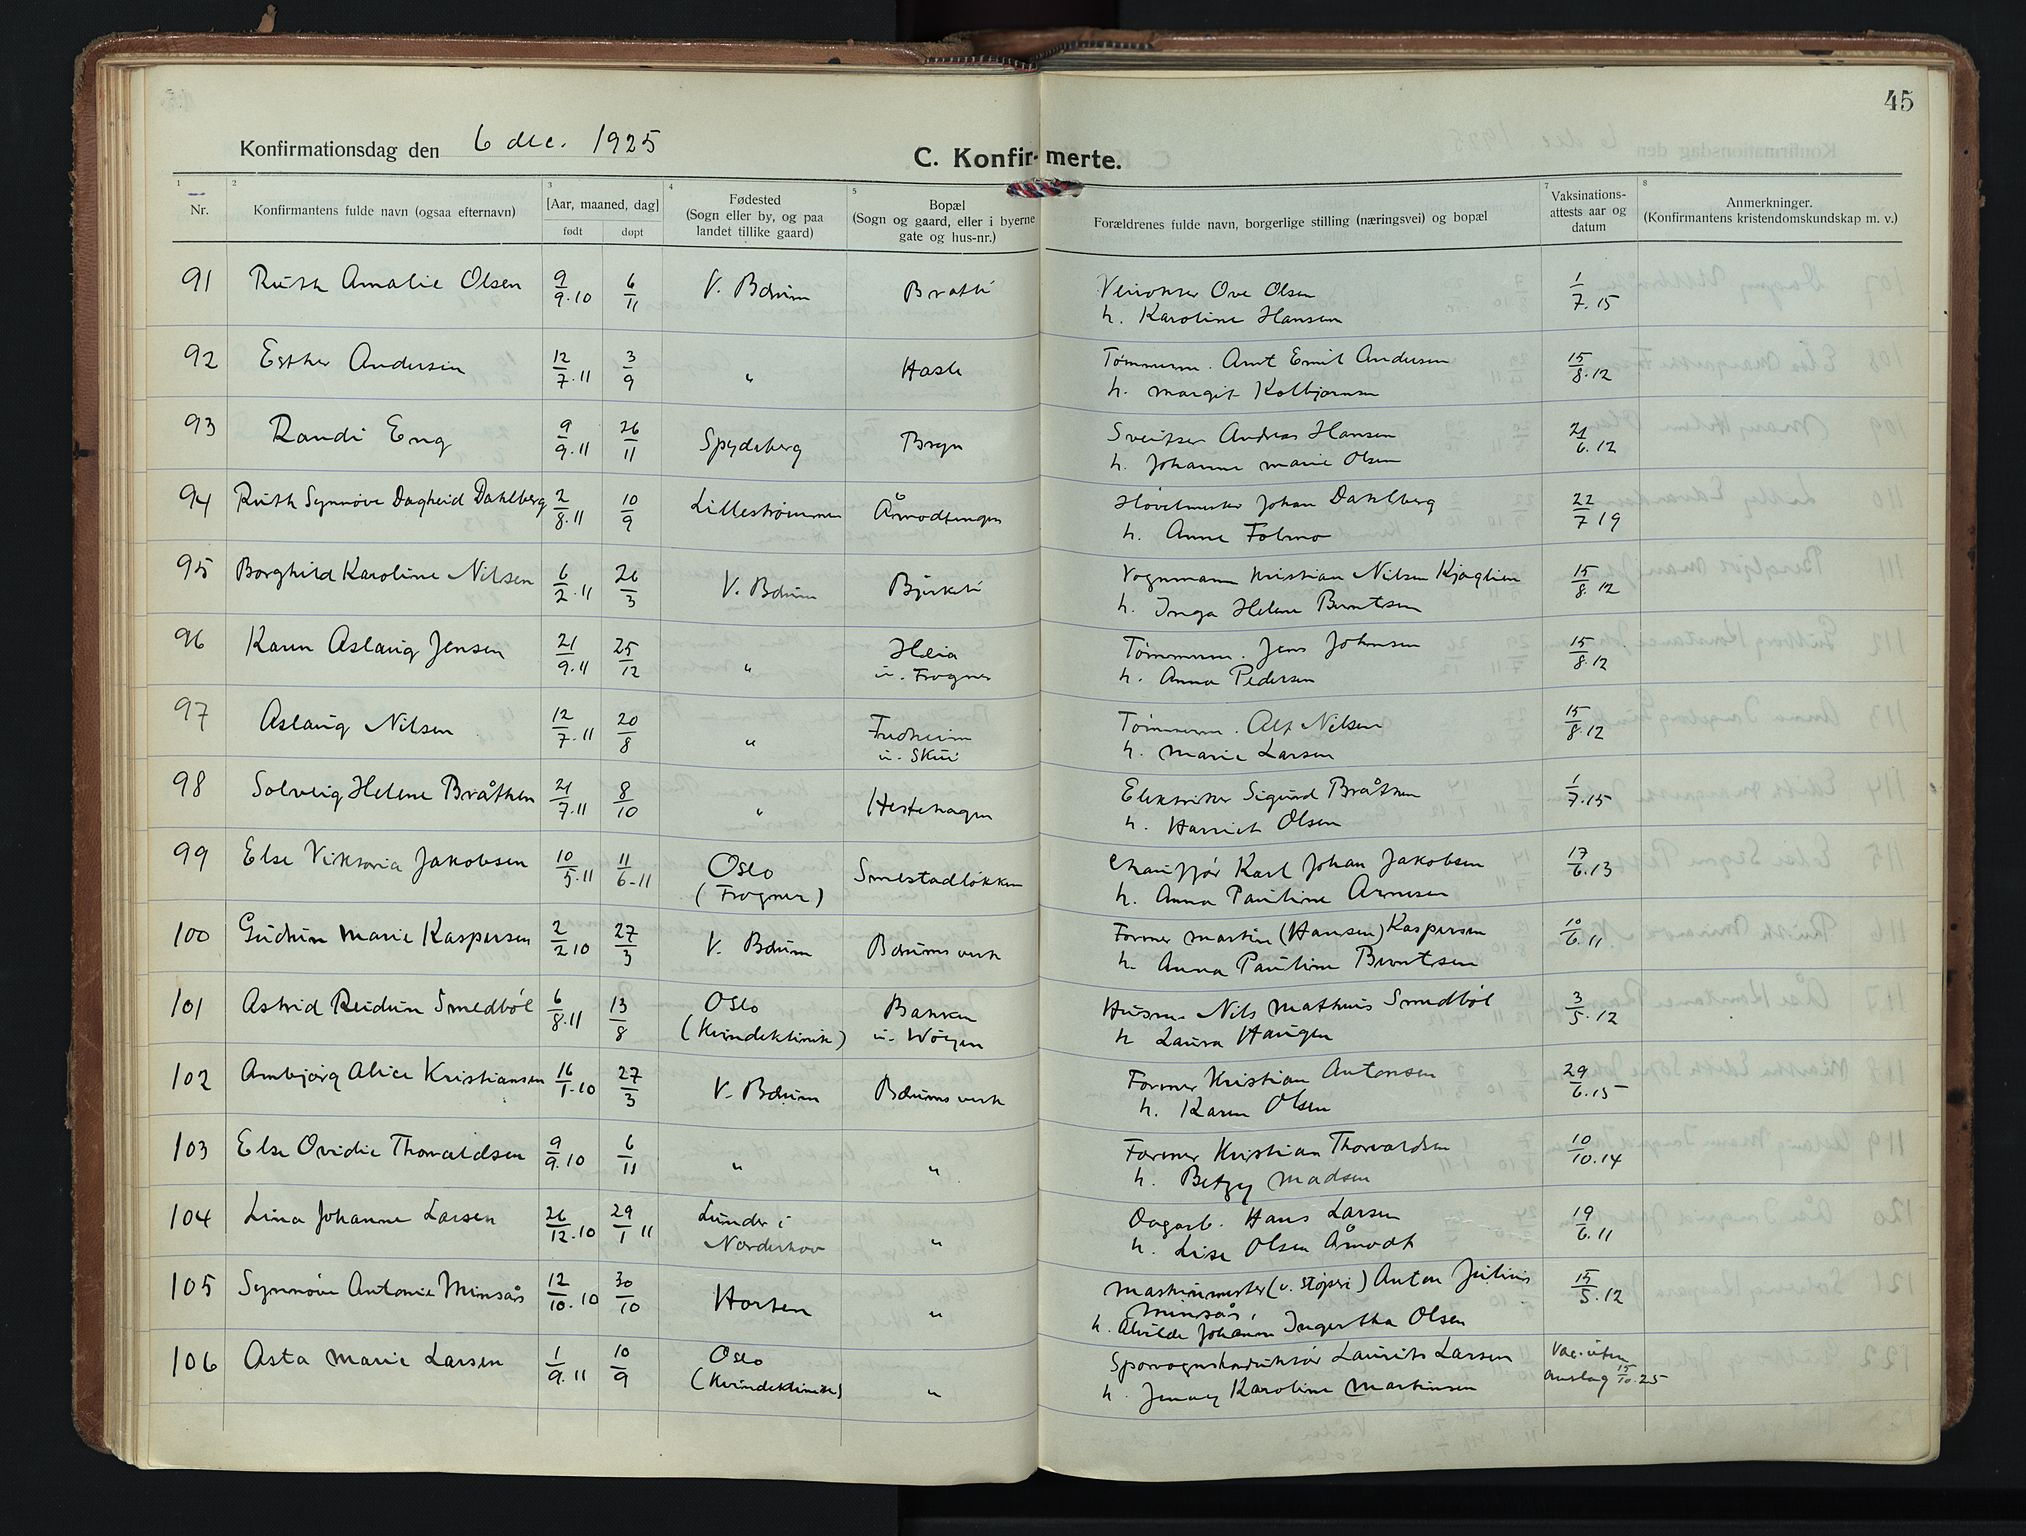 45
Konfirmationsdag den 6 dec. 1925
C. Konfirmerte.
1 2 3 4 5 7 8
Nr.
Konfirmantens fulde navn (ogsaa efternavn)
[Aar, maaned, dag]
født døpt
Fødested
(Sogn eller by, og paa
landet tillike gaard)
Bopæl
(Sogn og gaard, eller i byerne
gate og hus-nr.)
Forældrenes fulde navn, borgerlige stilling (næringsvei) og bopæl
Vaksinations-
attests aar og
datum
Anmerkninger.
(Konfirmantens kristendomskundskap m. v.)
91 Ruth Amalie Olsen 9/9.10 6/11 V. Bærum Ove Olsen 1/7.15
h. Karoline Hansen
92 Esther Andersen 12/7.11 3/9 " Hasle Tømmerm. Arnt Emil Andersen 15/8.12
h. Margit Kolbjørnsen
93 Randi Eng 9/9.11 26/11 Spydeberg Bryn Sveitser Andreas Hansen 21/6.12
h. Johanne Marie Olsen
94 Ruth Synnøve Dagheid Dahlberg 2/8.11 10/9 Lillestrømmen Åmodtengen Høvelmester Johan Dahlberg 22/7 19
h. Anne Folmo
95 Borghild Karoline Nilsen 6/2.11 26/3 V. Bærum Bjerkeli Vognmann Kristian Nilsen Kjaglien 15/8.12
h. Inga Helene Berntsen
96 Karen Aslaug Jensen 21/9.11 25/12 " Heia Tømmerm. Jens Johnsen 15/8.12
u. Frogner h. Anna Pedersen
97 Aslaug Nilsen 12/7.11 20/8 " Fredheim Tømmerm. Alf Nilsen 15/8.12
u. Skui h. Marie Larsen
98 Solveig Helene Bråthen 21/7.11 8/10 " Hestehagen Elektriker Sigurd Bråthen 1/7.15
h. Harriet Olsen
99 Else Viktoria Jakobsen 10/5.11 11/6-11 Oslo Smestadløkken Chauffør Karl Johan Jakobsen 17/6.13
(Frogner) h. Anna Pauline Arnesen
100 Gudrun Marie Kaspersen 2/2.10 27/3 V. Bærum Bærums verk Former Martin (Hansen) Kaspersen 10/6.11
h. Anna Pauline Berntsen
101 Astrid Reidun Smedbøl 6/8.11 13/8 Oslo Bakken Husm. Nils Mathias Smedbøl 3/5.12
(Kvindeklinik) u. Wøyen h Laura Haugen
102 Arnbjørg Alice Kristiansen 16/1.10 27/3 V. Bærum Bærums verk Former Kristian Antonsen 29/6.15
h. Karen Olsen
103 Else Ovidie Thorvaldsen 9/9.10 6/11 " " Former Kristian Thorvaldsen 10/10.14
h. Betzy Madsen
104 Lina Johanne Larsen 26/12.10 29/1 11 Lunder i " Dagarb. Hans Larsen 19/6.11
Norderhov h. Lise Olsen Åmodt
105 Synnøve Antonie Minsås 12/10.10 30/10 Horten " Maskinmester (v. støperi) Anton Julius 15/5.12
Minsås,
h. Alvilde Johanne Ingertha Olsen
106 Asta Marie Larsen 1/9.11 10/9 Oslo " Sporvognskonduktør Laurits Larsen Vac. uten
(Kvindeklinik) h. Jenny Karoline Martinsen anslag 15/10.25